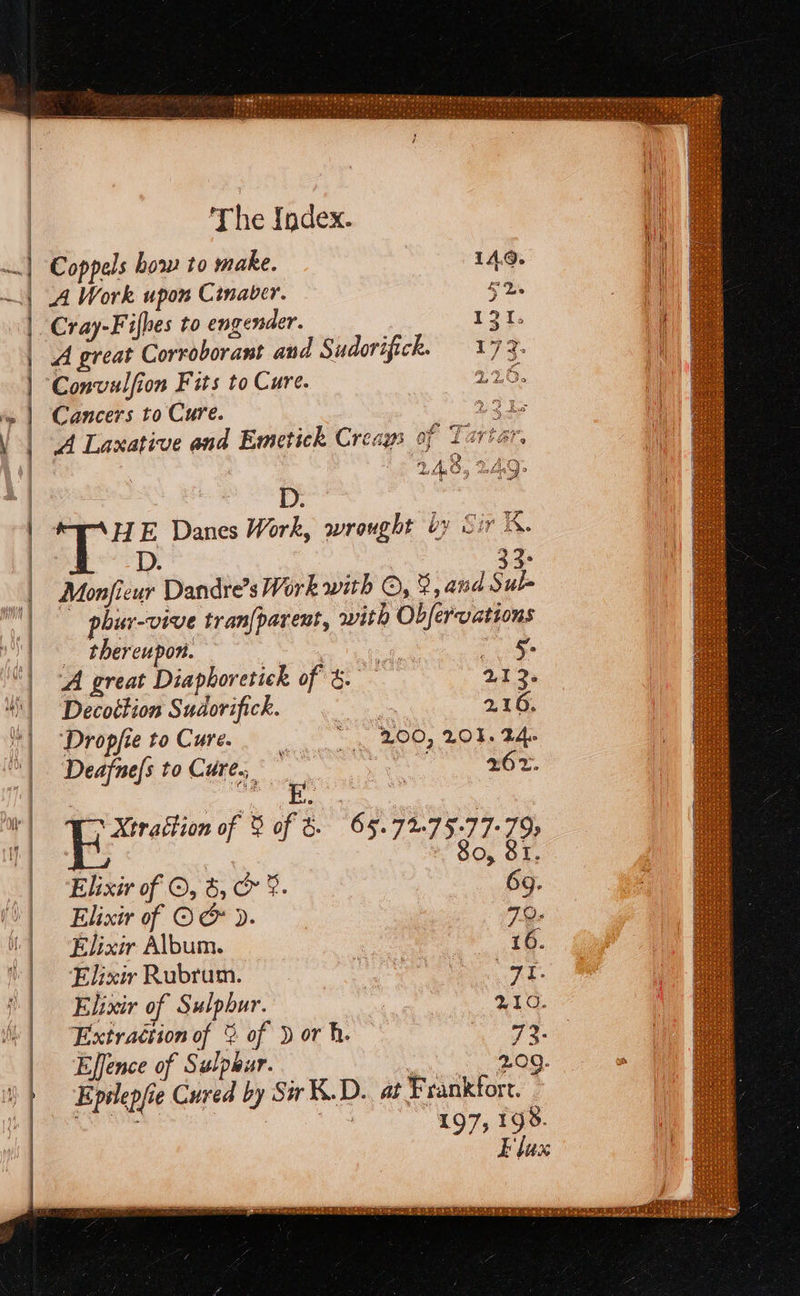 The Index.
Coppels how to make. 149.
A Work upon Cinaber. 52.
Cray-Fiſhes to engender. 131.
A great Corroborant and Sudorifick. 173.
Convulſion Fits to Cure. 226.
Cancers to Cure. 231.
A Laxative and Emetick Cream of Tartar.
248, 249.
D.
THE Danes Work, wrought by Sir K.
D. 33.
Monſieur Dandre's Work with ☉, ☿, and Sul-
phur-vive tranſparent, with Obſervations
thereupon. 5.
A great Diaphoretick of ♁. 213.
Decoction Sudorifick. 216.
Dropſie to Cure. 200, 201. 24.
Deafneſs to Cure. 262.
E.
EXtraction of ☿ of ♁. 65.72.75.77.79,
80, 81.
Elixir of ☉, ♁, & ☿. 69.
Elixir of ☉ & ☽. 70.
Elixir Album. 16.
Elixir Rubrum. 71.
Elixir of Sulphur. 210.
Extraction of ☿ of ☽ or ♄. 73.
Eſſence of Sulphur. 209.
Epilepſie Cured by Sir K.D. at Frankfort.
197, 198.
Flux